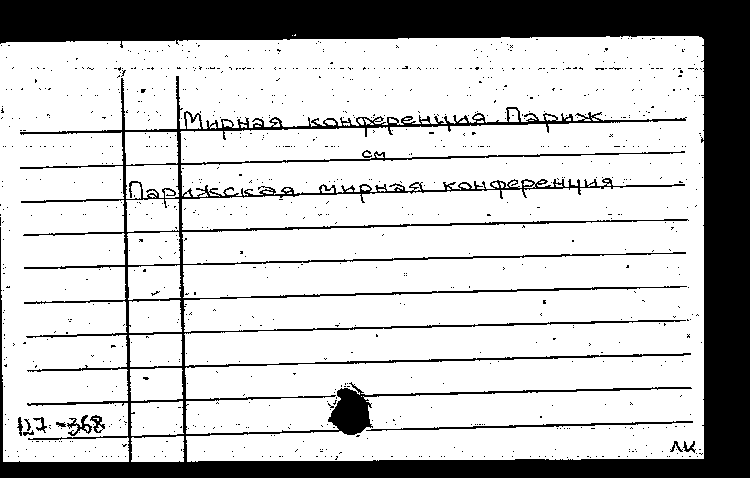 Мирная конференция. Париж
см
Парижская мирная конференция
127-368
ЛК